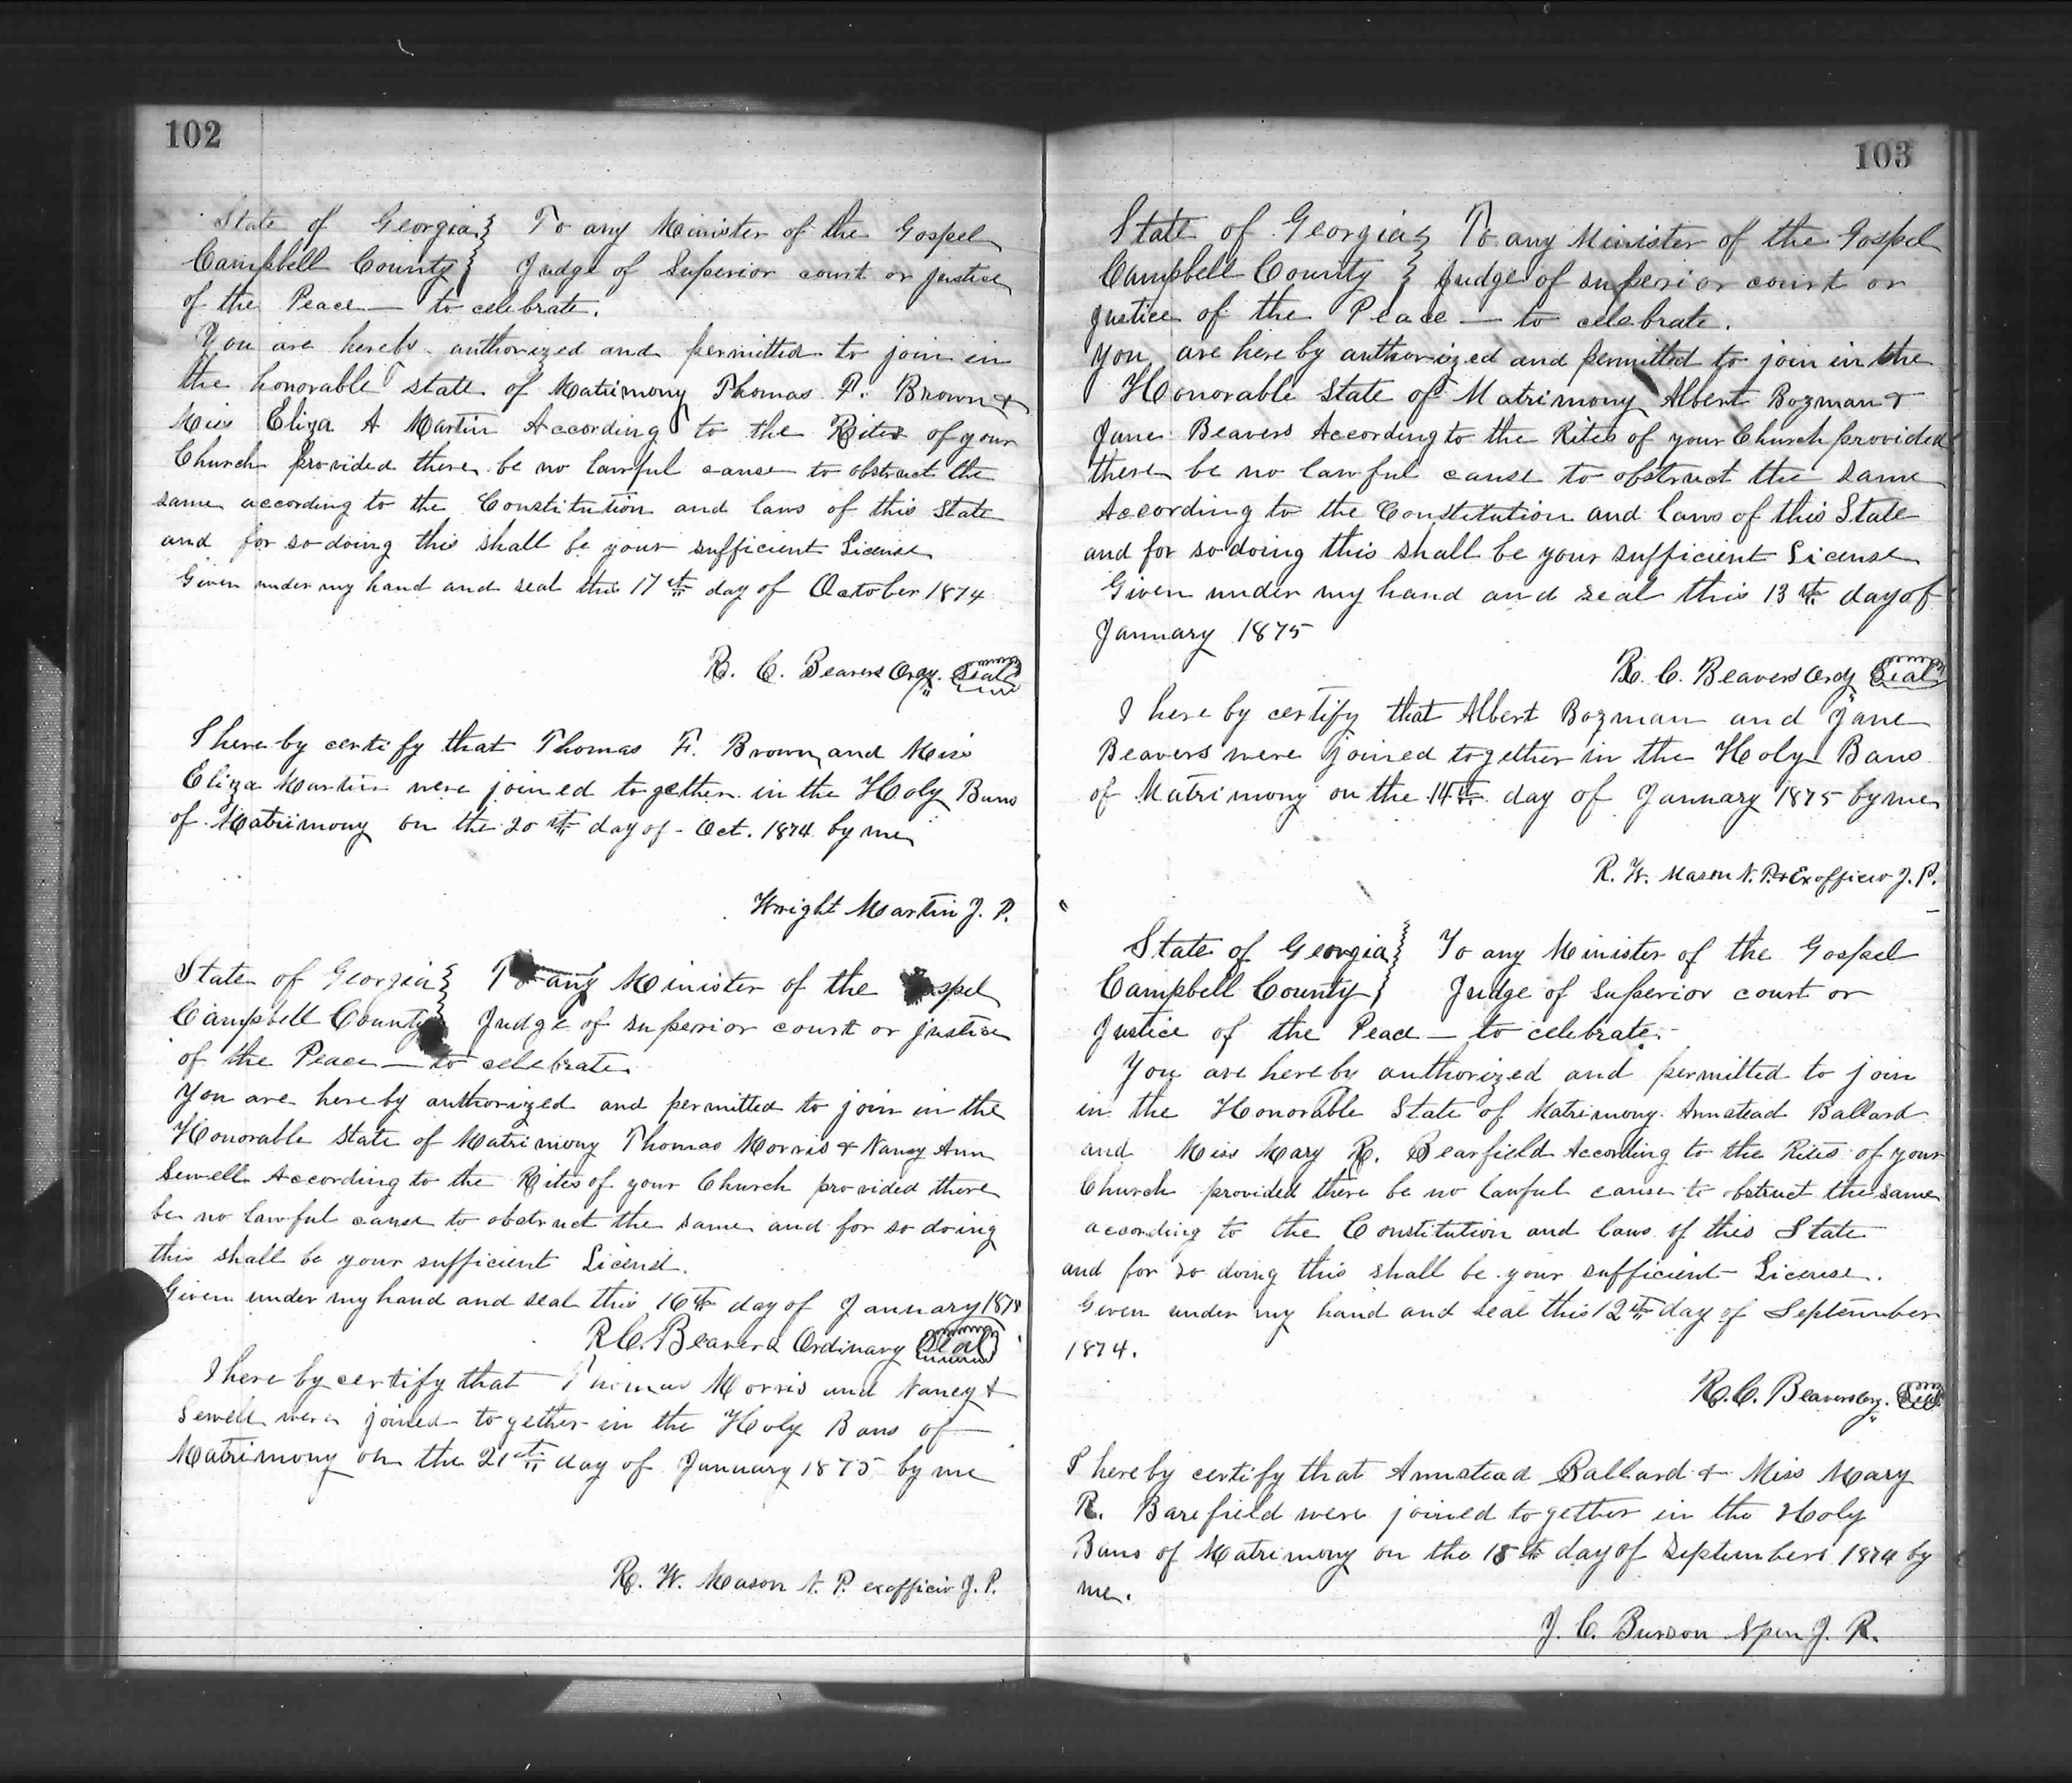 102
State of Georgia } To any Minister of the Gospel
Campbell County } Judge of Superior court or justice
of the Peace — to celebrate.
You are hereby authorized and permitted to join in
the honorable state of Matrimony Thomas F. Brown &
Miss Eliza A Martin According to the Rites of your
Church provided there be no lawful cause to obstruct the
same according to the Constitution and laws of this State
and for so doing this shall be your sufficient License
Given under my hand and seal this 17th day of October 1874
R. C. Beavers Ordy. Seal
I here by certify that Thomas F. Brown and Miss
Eliza Martin were joined together in the Holy Bans
of Matrimony on the 20th day of - Oct. 1874 by me
Wright Martin J. P.
State of Georgia } To any Minister of the Gospel
Campbell County } Judge of superior court or justice
of the Peace — to celebrate
You are here by authorized and permitted to join in the
Honorable State of Matrimony Thomas Morris & Nancy Ann
Sewell According to the Rites of your Church provided there
be no lawful cause to obstruct the same and for so doing
this shall be your sufficient Licend.
Given under my hand and seal this 16th day of January 187
R. C. Beavers Ordinary Seal
I here by certify that Thomas Morris and Nancy A
Sewell were joined together in the Holy Bans of
Matrimony on the 21th day of January 1875 by me
R. W. Mason N. P. exofficio J. P.
103
State of Georgia } To any Minister of the Gospel
Campbell County } Judge of superior court or
Justice of the Peace — to celebrate.
You are here by authorized and permitted to join in the
Honorable State of Matrimony Albert Bozman &
Jane Beavers According to the Rites of your Church provided
there be no lawful cause to obstruct the same
According to the Constitution and laws of this State
and for so doing this shall be your sufficient License
Given under my hand and seal this 13th day of
January 1875
R. C. Beavers Ordy Seal
I here by certify that Albert Bozman and Jane
Beavers were joined together in the Holy Bans
of Matrimony on the 14th day of January 1875 by me
R. W. Mason N. P. & Exofficio J. P.
State of Georgia } To any Minister of the Gospel
Campbell County } Judge of Superior court or
Justice of the Peace — to celebrate. -
You are here by authorized and permitted to join
in the Honorable State of Matrimony Armstead Ballard
and Miss Mary R. Bearfield According to the Rites of your
Church provided there be no lawful cause to obstruct the same
according to the Constitution and laws of this State
and for so doing this shall be your sufficient License.
Given under my hand and seal this 12th day of September
1874.
R. C. Beavers Ory. Seal
I hereby certify that Armstead Ballard & Miss Mary
R. Barefield were joined together in the Holy
Bans of Matrimony on the 18th day of September 1874 by
me.
J. C. Burson J. P.